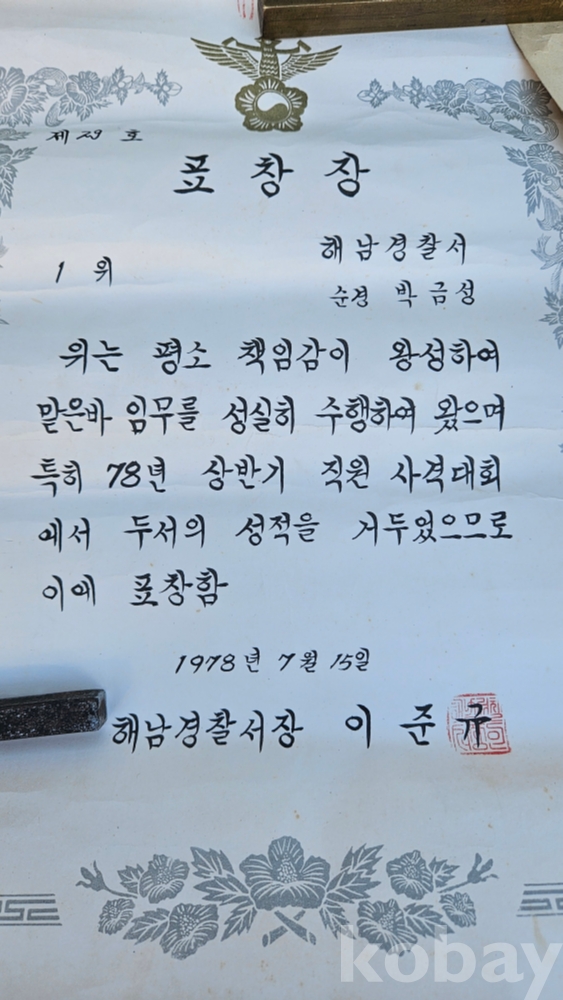 제 29 호
표창장
해남경찰서
1 위
순경 박금성
위는 평소 책임감이 왕성하여
맡은바 임무를 성실히 수행하여 왔으며
특히 78년 상반기 직원 사격대회
에서 두서의 성적을 거두었으므로
이에 표창함
1978년 7월 15일
해남경찰서장 이준규
kobay